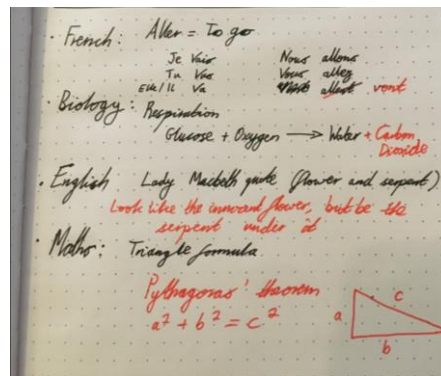 · French: Aller = To go
Je Vais Nous allons
Tu Vas Vous allez
Elle/Il Va vont
· Biology: Respiration
Glucose + Oxygen → Water + Carbon
Dioxide
· English Lady Macbeth quote (flower and serpent)
Look like the innocent flower, but be the
serpent under it
· Maths: Triangle formula
Pythagoras' theorem
a² + b² = c²
a
c
b